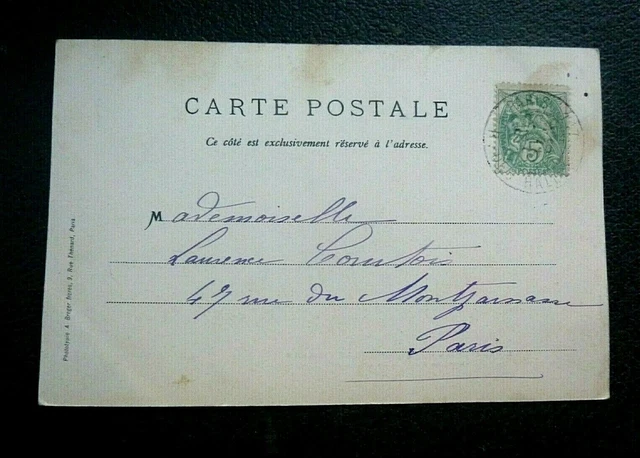 CARTE POSTALE
Ce côté est exclusivement réservé à l'adresse.
5
Mademoiselle
Laurence Courtois
47 rue du Montparnasse
Paris
Phototypie A. Berger frères, 9, Rue Thénard, Paris